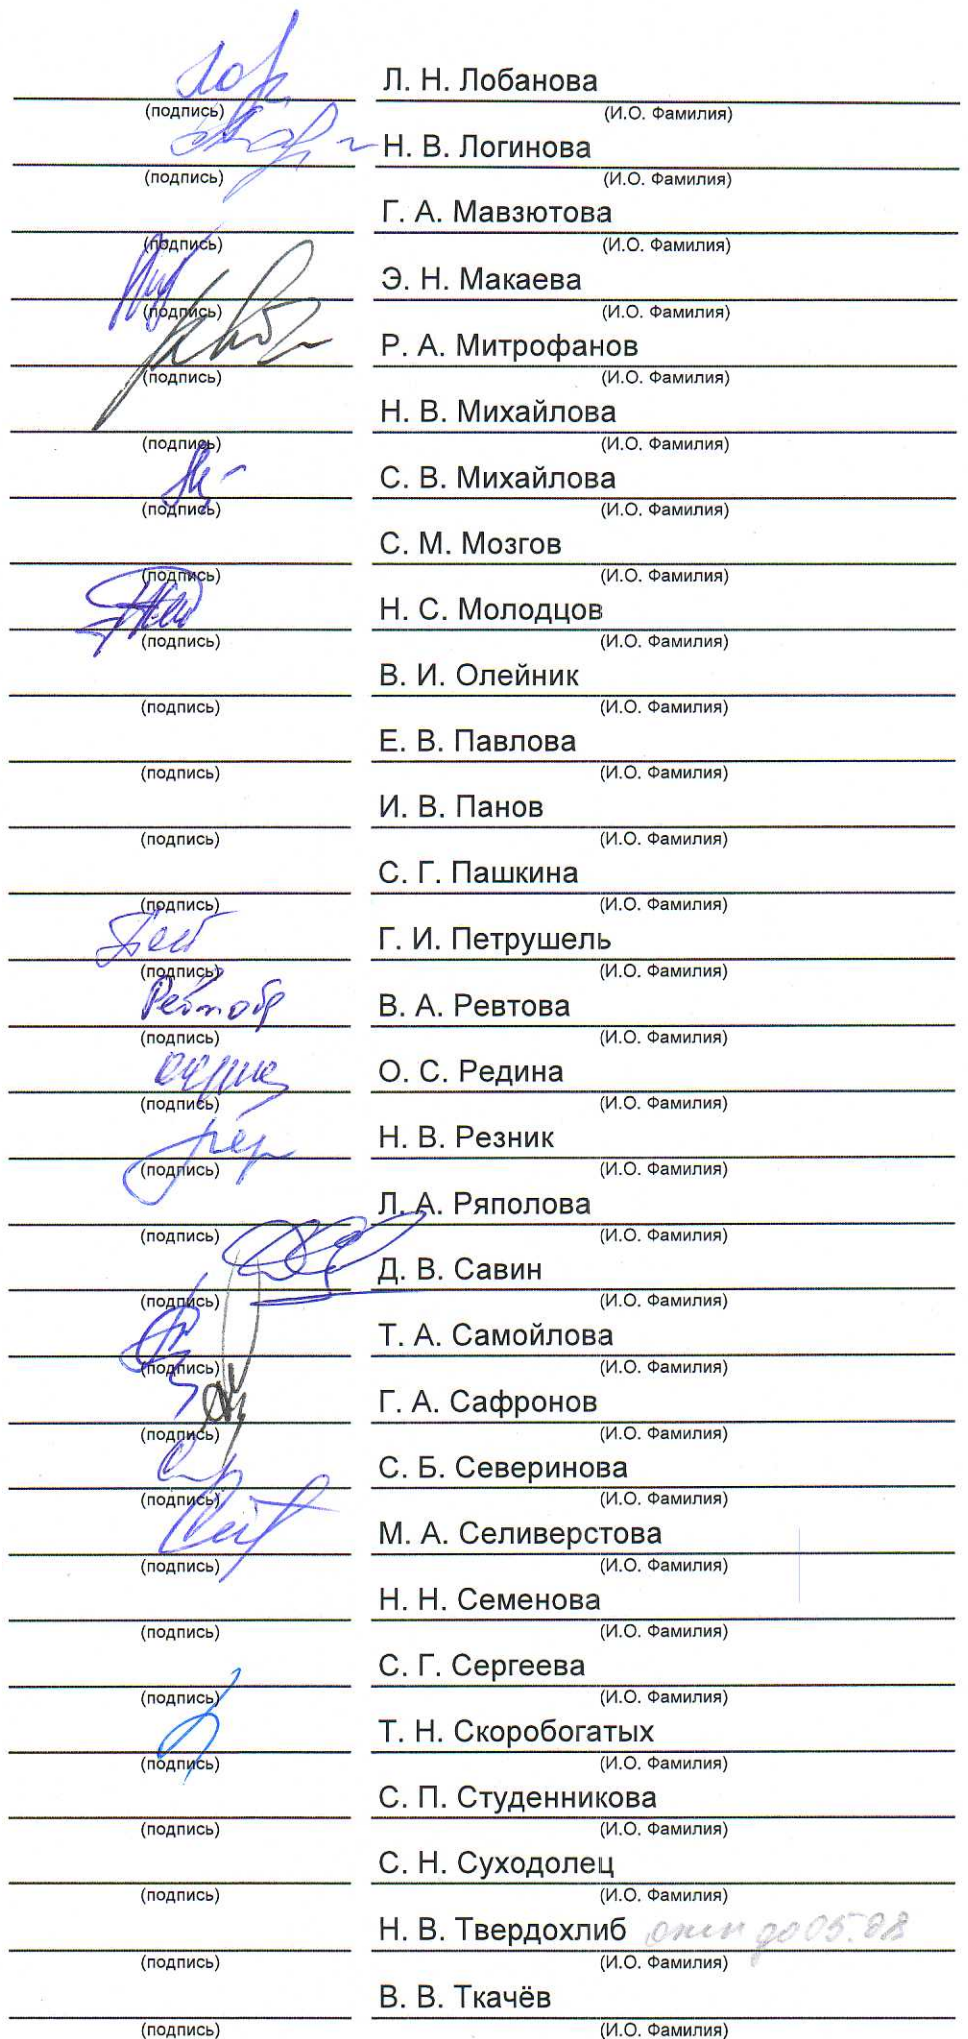 Л. Н. Лобанова
(подпись) (И.О. Фамилия)
Н. В. Логинова
(подпись) (И.О. Фамилия)
Г. А. Мавзютова
(подпись) (И.О. Фамилия)
Э. Н. Макаева
(подпись) (И.О. Фамилия)
Р. А. Митрофанов
(подпись) (И.О. Фамилия)
Н. В. Михайлова
(подпись) (И.О. Фамилия)
С. В. Михайлова
(подпись) (И.О. Фамилия)
С. М. Мозгов
(подпись) (И.О. Фамилия)
Н. С. Молодцов
(подпись) (И.О. Фамилия)
В. И. Олейник
(подпись) (И.О. Фамилия)
Е. В. Павлова
(подпись) (И.О. Фамилия)
И. В. Панов
(подпись) (И.О. Фамилия)
С. Г. Пашкина
(подпись) (И.О. Фамилия)
Г. И. Петрушель
(подпись) (И.О. Фамилия)
В. А. Ревтова
(подпись) (И.О. Фамилия)
О. С. Редина
(подпись) (И.О. Фамилия)
Н. В. Резник
(подпись) (И.О. Фамилия)
Л. А. Ряполова
(подпись) (И.О. Фамилия)
Д. В. Савин
(подпись) (И.О. Фамилия)
Т. А. Самойлова
(подпись) (И.О. Фамилия)
Г. А. Сафронов
(подпись) (И.О. Фамилия)
С. Б. Северинова
(подпись) (И.О. Фамилия)
М. А. Селиверстова
(подпись) (И.О. Фамилия)
Н. Н. Семенова
(подпись) (И.О. Фамилия)
С. Г. Сергеева
(подпись) (И.О. Фамилия)
Т. Н. Скоробогатых
(подпись) (И.О. Фамилия)
С. П. Студенникова
(подпись) (И.О. Фамилия)
С. Н. Суходолец
(подпись) (И.О. Фамилия)
Н. В. Твердохлиб до 05.08
(подпись) (И.О. Фамилия)
В. В. Ткачёв
(подпись) (И.О. Фамилия)